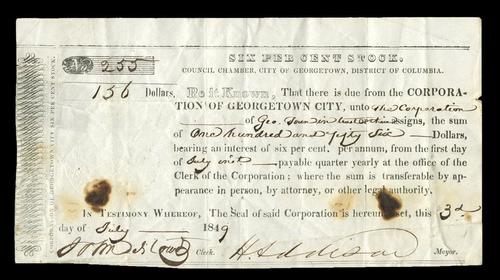 SIX PER CENT STOCK.
No 255 COUNCIL CHAMBER, CITY OF GEORGETOWN, DISTRICT OF COLUMBIA.
156 Dollars, Be it Known, That there is due from the CORPORA-
TION OF GEORGETOWN CITY, unto the Corporation
of Geo. Town in trust or their assigns, the sum
of One hundred and fifty Six Dollars,
bearing an interest of six per cent. per annum, from the first day
of July inst payable quarter yearly at the office of the
Clerk of the Corporation; where the sum is transferable by ap-
pearance in person, by attorney, or other legal authority.
IN TESTIMONY WHEREOF, The Seal of said Corporation is hereunto set, this 3d
day of July 1849
Clerk. H Addison Mayor.
CORPORATION OF GEORGETOWN CITY SIX PER CENT STOCK.